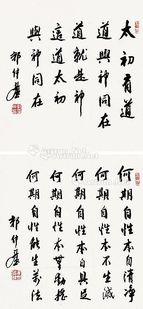 太初有道
道與神同在
道就是神
這道太初
與神同在
郭仲選
何期自性本自清淨
何期自性本不生滅
何期自性本自具足
何期自性本無動搖
何期自性能生萬法
郭仲選